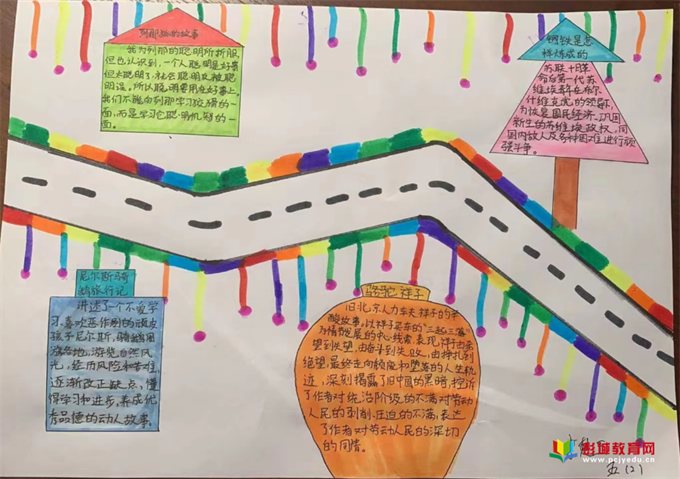 列那狐的故事
我为列那的聪明所折服,
但也认识到,一个人聪明是好事
但太聪明了,就会聪明反被聪
明误。所以聪明要用在好事上,
我们不能向列那学习狡猾的一
面,而是学习它聪明机智的一
面。
钢铁是怎
样炼成的
苏联十月革
命后第一代苏
维埃青年在布尔
什维克党的领导
为恢复国民经济、巩固
新生的苏维埃政权,同
国内敌人及各种困难进行顽
强斗争。
尼尔斯骑
鹅旅行记
讲述了一个不爱学
习、喜欢恶作剧的顽皮
孩子尼尔斯,骑鹅周
游各地,游览自然风
光,经历风险和苦难,
逐渐改正缺点,懂
得学习和进步,养成优
秀品德的动人故事。
骆驼祥子
旧北京人力车夫祥子的辛
酸故事,以祥子买车的“三起三落”
为情节发展的中心线索,表现祥子由希
望到失望,由奋斗到失败,由挣扎到
绝望,最终走向颓废和堕落的人生轨
迹,深刻揭露了旧中国的黑暗,控诉
了作者对统治阶级的不满对劳动
人民的剥削、压迫的不满,表达
了作者对劳动人民的深切
的同情。
五(2)
彭城教育网
www.pcjyedu.cn